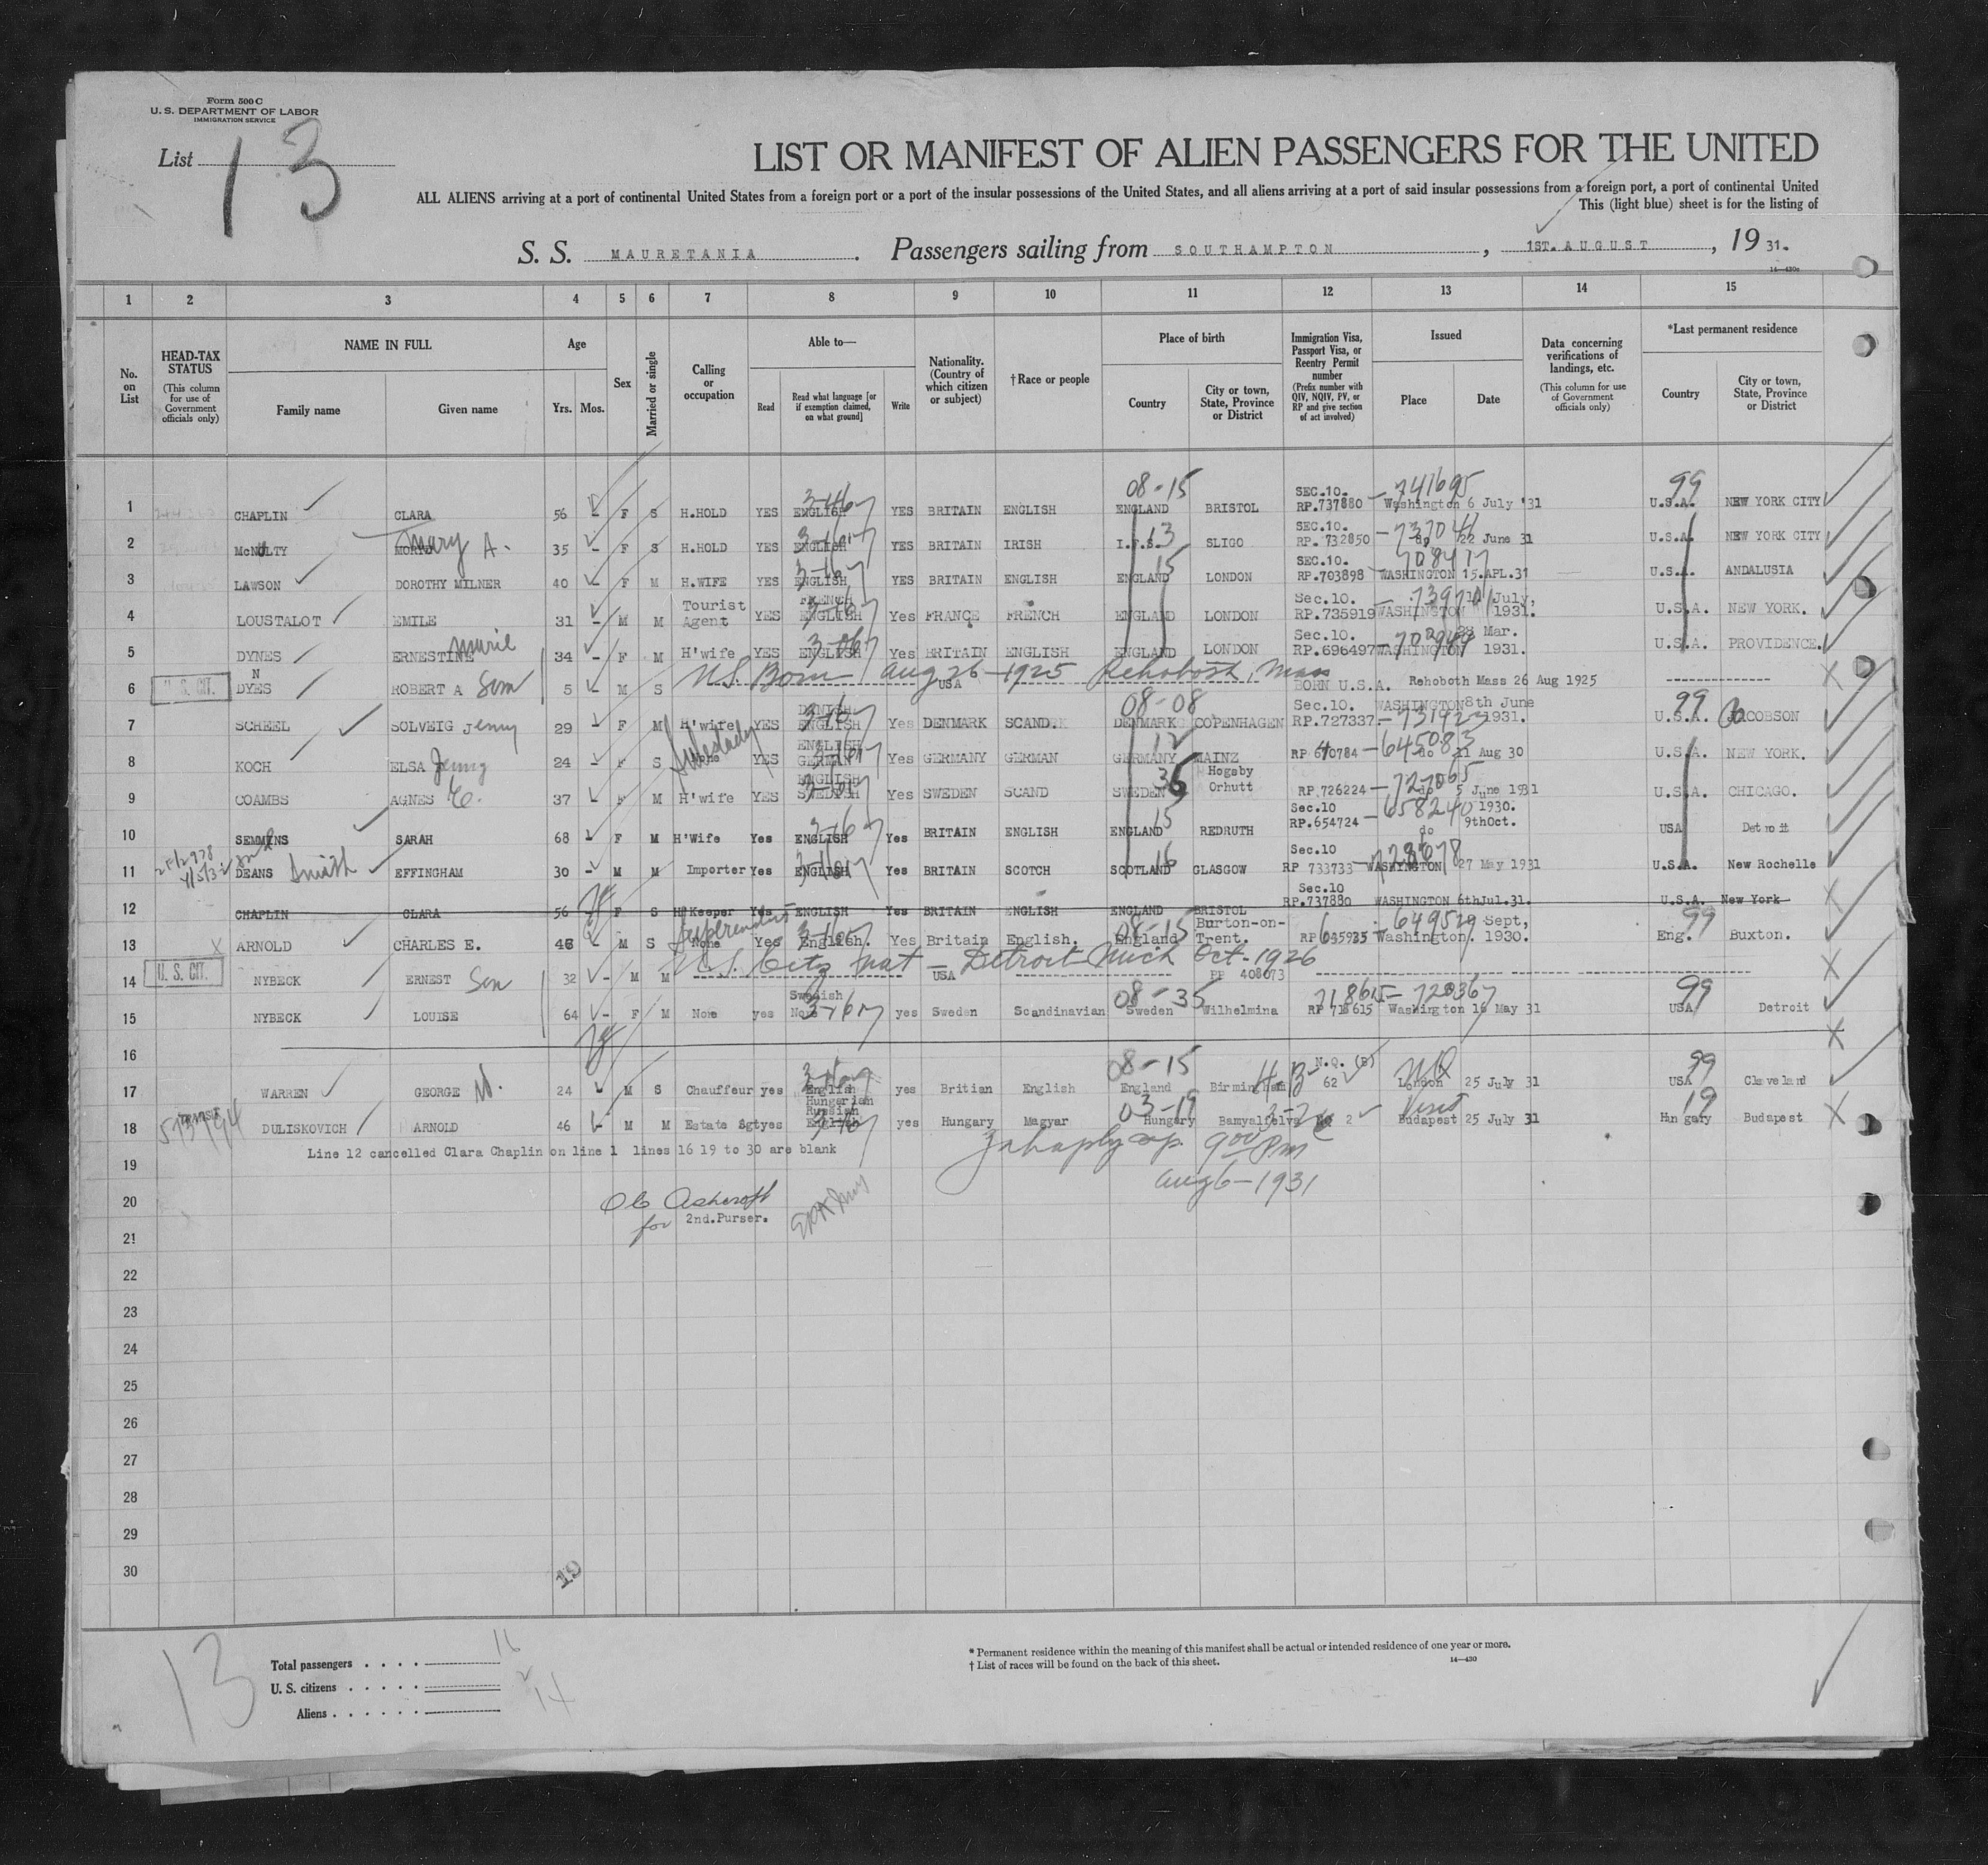 Form 500 C
U. S. DEPARTMENT OF LABOR
IMMIGRATION SERVICE
List 13
LIST OR MANIFEST OF ALIEN PASSENGERS FOR THE UNITED
ALL ALIENS arriving at a port of continental United States from a foreign port or a port of the insular possessions of the United States, and all aliens arriving at a port of said insular possessions from a foreign port, a port of continental United
This (light blue) sheet is for the listing of
S. S. MAURETANIA. Passengers sailing from SOUTHAMPTON, 1ST. AUGUST, 19 31.
14—430c
1 2 3 4 5 6 7 8 9 10 11 12 13 14 15
No. on List
HEAD-TAX STATUS (This column for use of Government officials only)
NAME IN FULL
Family name Given name
Age
Yrs. Mos.
Sex
Married or single
Calling or occupation
Able to—
Read Read what language [or if exemption claimed, on what ground] Write
Nationality. (Country of which citizen or subject)
† Race or people
Place of birth
Country City or town, State, Province or District
Immigration Visa, Passport Visa, or Reentry Permit number (Prefix number with QIV, NQIV, PV, or RP and give section of act involved)
Issued
Place Date
Data concerning verifications of landings, etc. (This column for use of Government officials only)
*Last permanent residence
Country City or town, State, Province or District
1 CHAPLIN CLARA 56 - F S H.HOLD YES ENGLISH YES BRITAIN ENGLISH 08-15 ENGLAND BRISTOL SEC.10. RP.737880 - 741695 Washington 6 July '31 99 U.S.A. NEW YORK CITY
2 McNULTY Mary A. 35 - F S H.HOLD YES ENGLISH YES BRITAIN IRISH I.F.S. 13 SLIGO SEC.10. RP. 732850 - 737041 do 22 June 31 U.S.A. NEW YORK CITY
3 LAWSON DOROTHY MILNER 40 - F M H.WIFE YES ENGLISH YES BRITAIN ENGLISH ENGLAND 15 LONDON SEC.10. RP.703898 - 708477 WASHINGTON 15.APL.31 U.S.A. ANDALUSIA
4 LOUSTALOT EMILE 31 - M M Tourist Agent YES FRENCH ENGLISH Yes FRANCE FRENCH ENGLAND LONDON Sec.10. RP.735919 WASHINGTON July, 1931. U.S.A. NEW YORK.
5 DYNES ERNESTINE Murie 34 - F M H'wife YES ENGLISH Yes BRITAIN ENGLISH ENGLAND LONDON Sec.10. RP.696497 WASHINGTON 28 Mar. 1931. U.S.A. PROVIDENCE.
6 U. S. CIT. DYES N ROBERT A Son 5 - M S U.S. Born Aug 26-1925 Rehoboth, Mass USA BORN U.S.A. Rehoboth Mass 26 Aug 1925
7 SCHEEL SOLVEIG Jenny 29 - F M H'wife YES DANISH ENGLISH Yes DENMARK SCAND. 08-08 DENMARK COPENHAGEN Sec.10. RP.727337 - 731423 WASHINGTON 8th June 1931. 99 U.S.A. JACOBSON
8 KOCH ELSA Jenny 24 - F S Saleslady None YES ENGLISH GERMAN Yes GERMANY GERMAN 12 GERMANY MAINZ RP 640784 - 645083 do 11 Aug 30 U.S.A. NEW YORK.
9 COAMBS AGNES E. 37 - F M H'wife YES ENGLISH SWEDISH Yes SWEDEN SCAND SWEDEN 36 Hogsby Orhutt RP.726224 - 727065 do 5 June 1931 U.S.A. CHICAGO.
10 SEMMENS SARAH 68 - F M H'Wife Yes ENGLISH Yes BRITAIN ENGLISH ENGLAND 15 REDRUTH Sec.10 RP.654724 - 658240 do 9thOct. 1930. USA Detroit
11 DEANS Smith EFFINGHAM 30 - M M Importer Yes ENGLISH Yes BRITAIN SCOTCH SCOTLAND 16 GLASGOW Sec.10 RP 733733 - 728678 WASHINGTON 27 May 1931 U.S.A. New Rochelle
12 CHAPLIN CLARA 56 - F S H'Keeper Yes ENGLISH Yes BRITAIN ENGLISH ENGLAND BRISTOL Sec.10 RP.737880 WASHINGTON 6thJul.31. U.S.A. New York
13 ARNOLD CHARLES E. 46 - M S None Yes English. Yes Britain English. 08-15 England Burton-on-Trent. RP 645925 - 649529 Washington. Sept, 1930. 99 Eng. Buxton.
14 U. S. CIT. NYBECK ERNEST Son 32 - M M U.S. Citz Nat - Detroit Mich Oct-1926 USA PP 408073
15 NYBECK LOUISE 64 - F M None yes Swedish None yes Sweden Scandinavian 08-35 Sweden Wilhelmina 718615 - 720367 RP 718615 Washington 16 May 31 99 USA Detroit
16
17 WARREN GEORGE W. 24 - M S Chauffeur yes English yes Britian English 08-15 England Birmingham N.Q. (B) 62 London 25 July 31 99 USA Cleveland
18 TRANSIT DULISKOVICH ARNOLD 46 - M M Estate Agt yes Hungarian Russian English yes Hungary Magyar 03-19 Hungary No 2 Visit Budapest 25 July 31 19 Hungary Budapest
19 Line 12 cancelled Clara Chaplin on line 1 lines 16 19 to 30 are blank
9 00 Pm
Aug 6-1931
20
Ashcroft
for 2nd.Purser.
21
22
23
24
25
26
27
28
29
30
19
13
Total passengers 16
U. S. citizens 2
Aliens 14
* Permanent residence within the meaning of this manifest shall be actual or intended residence of one year or more.
† List of races will be found on the back of this sheet.
14—430